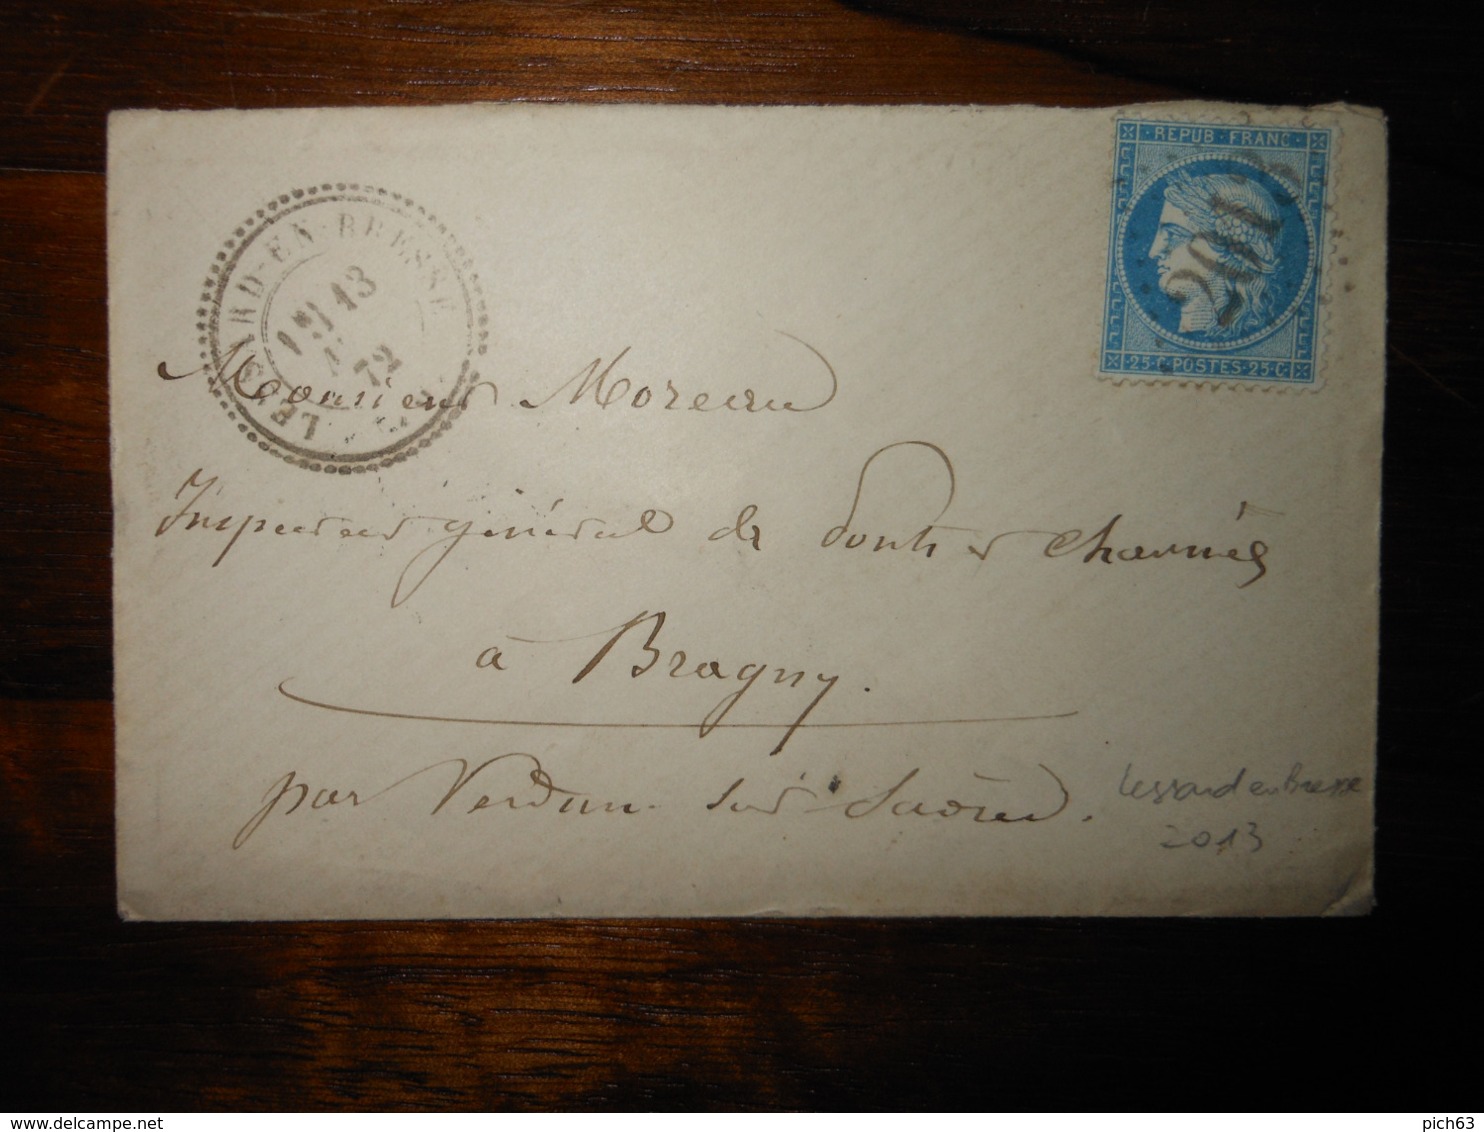 REPUB·FRANC
2013
25·C·POSTES·25·C
LESSARD-EN-BRESSE
13
72
Monsieur Moreau
Inspecteur général de Ponts et Chaussées
à Bragny.
par Verdun sur Saône.
Lessard en Bresse
2013
delcampe.net
pich63